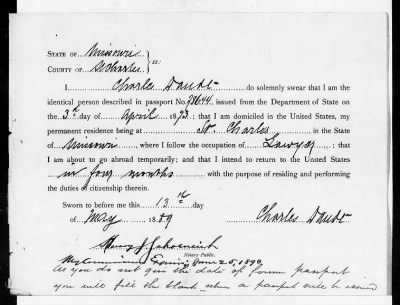 STATE OF Missouri
COUNTY OF St Charles } ss:
I Charles Daudt do solemnly swear that I am the
identical person described in passport No. issued from the Department of State on
the 3d day of April 1873; that I am domiciled in the United States, my
permanent residence being at St. Charles, in the State
of Missouri, where I follow the occupation of Lawyer; that
I am about to go abroad temporarily; and that I intend to return to the United States
in four months with the purpose of residing and performing
the duties of citizenship therein.
Sworn to before me this 13th day
of May 1889 Charles Daudt
Henry J.
Notary Public.
My Commission Expires 25, 1890
As you do not give the date of former passport
you will fill the blank when a passport will be issued